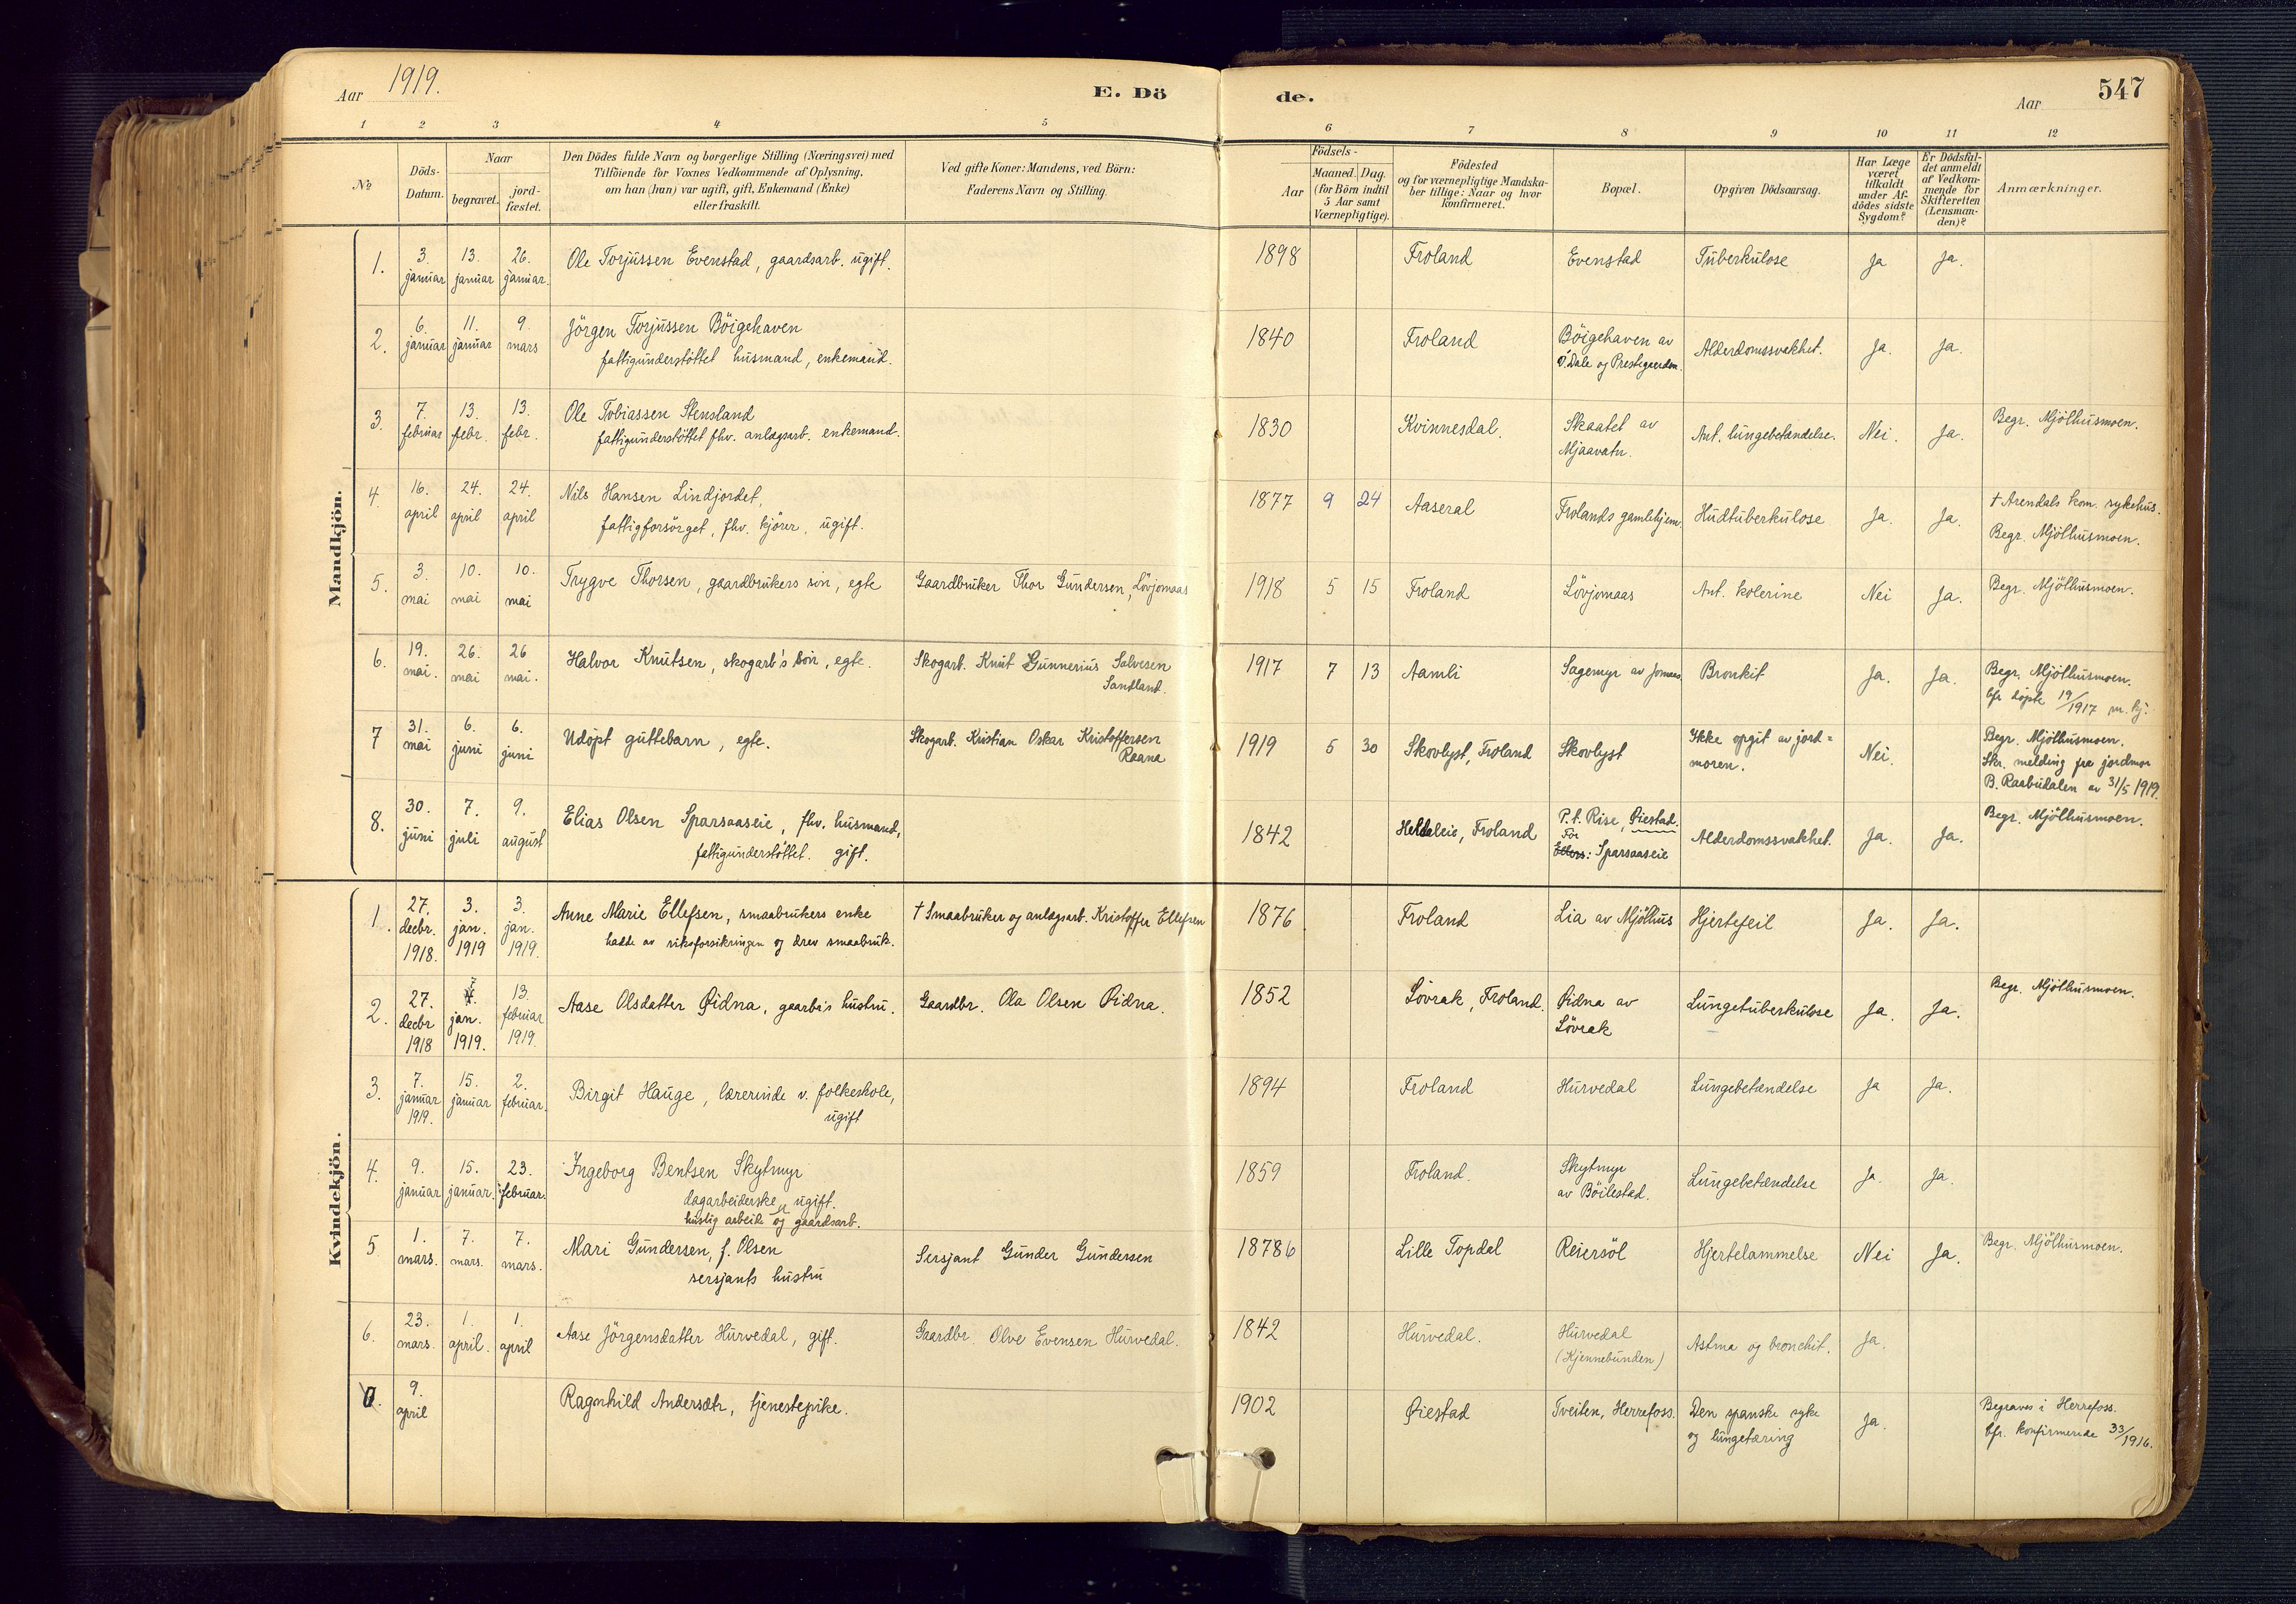 Aar 1919. E. Dö de. Aar 547
1 2 3 4 5 6 7 8 9 10 11 12
No
Döds-
Datum.
Naar
begravet.
jord-
fæstet.
Den Dödes fulde Navn og borgerlige Stilling (Næringsvei) med
Tilföiende for Voxnes Vedkommende af Oplysning,
om han (hun) var ugift, gift, Enkemand (Enke)
eller fraskilt.
Ved gifte Koner: Mandens, ved Börn:
Faderens Navn og Stilling.
Födsels-
Aar
Maaned. Dag.
(for Börn indtil
5 Aar samt
Værnepligtige).
Födested
og for værnepligtige Mandska-
ber tillige: Naar og hvor
konfirmeret.
Bopæl.
Opgiven Dödsaarsag.
Har Læge
været
tilkaldt
under Af-
dödes sidste
Sygdom?
Er Dödsfal-
det anmeldt
af Vedkom-
mende for
Skifteretten
(Lensman-
den)?
Anmærkninger.
Mandkjön.
1. 3. januar 13. januar 26. januar. Ole Torjussen Evenstad, gaardsarb. ugift. 1898 Froland Evenstad Tuberkulose Ja Ja.
2. 6. januar 11. januar 9. mars Jörgen Torjussen Böigehaven
fattigunderstöttet husmand, enkemand. 1840 Froland Böigehaven av
Ö. Dale og Prestegaarden. Alderdomssvakhet. Ja. Ja.
3. 7. februar 13. febr. 13. febr. Ole Tobiassen Stensland
fattigunderstöttet fhv. anlægsarb. enkemand. 1830 Kvinnesdal. Skaatet av
Mjaavatn. Ant. lungebetændelse. Nei. Ja. Begr. Mjölhusmoen.
4. 16. april 24. april 24. april Nils Hansen Lindjordet,
fattigforsörget, fhv. kjörer, ugift. 1877 9 24 Aaseral Frolands gamlehjem. Hudtuberkulose Ja. Ja. † Arendals kom. sykehus.
Begr. Mjölhusmoen.
5. 3. mai 10. mai 10. mai Trygve Thorsen, gaardbrukers sön, egte Gaardbruker Thor Gundersen, Lövjomaas 1918 5 15 Froland Lövjomaas Ant. kolerine Nei Ja. Begr. Mjölhusmoen.
6. 19. mai. 26. mai 26 mai. Halvor Knutsen, skogarb's sön, egte. Skogarb. Knut Gunnerius Salvesen
Sandland. 1917 7 13 Aamli Sagemyr av Jomaas. Bronkit Ja. Ja. Begr. Mjölhusmoen.
Cfr döpte 19/1917 m. kj.
7 31. mai 6. juni 6. juni Udöpt guttebarn, egte. Skogarb. Kristian Oskar Kristoffersen
Raana 1919 5 30 Skovlyst, Froland Skovlyst Ikke opgit av jord=
moren. Nei. Begr. Mjölhusmoen.
Skr. melding fra jordmor
B. Raabudalen av 31/5 1919.
8. 30. juni 7. juli 9. august Elias Olsen Sparsaaseie, fhv. husmand,
fattigunderstöttet. gift. 1842 Heldaleie, Froland P.t. Rise, Øiestad.
För
Ellers: Sparsaaseie Alderdomssvakhet. Ja. Ja. Begr. Mjölhusmoen.
Kvindekjön.
1. 27. decbr. 1918. 3. jan. 1919 3. jan. 1919. Anne Marie Ellefsen, smaabrukers enke
hadde av rikoforsikringen og drev smaabruk. † Smaabruker og anlægsarb. Kristoffer Ellefsen 1876 Froland Lia av Mjölhus Hjertefeil Ja. Ja.
2. 27. decbr 1918 7. jan. 1919. 13. februar 1919. Aase Olsdatter Øidna, gaarbr's hustru. Gaardbr. Ola Olsen Øidna. 1852 Lövrak, Froland. Øidna av
Lövrak Lungetuberkulose Ja. Ja. Begr. Mjölhusmoen.
3. 7. januar 1919. 15. januar 2. februar. Birgit Hauge, lærerinde v. folkeskole,
ugift 1894 Froland Hurvedal Lungebetændelse Ja Ja.
4. 9. januar 15. januar. 23. februar. Ingeborg Bentsen Skytmyr
dagarbeiderske, ugift.
huslig arbeide og gaardsarb. 1859 Froland. Skytmyr
av Böilestad. Lungebetændelse Ja. Ja.
5 1. mars. 7. mars. 7. mars. Mari Gundersen, f. Olsen
sersjants hustru Sersjant Gunder Gundersen 18786 Lille Topdal Reiersöl Hjertelammelse Nei Ja. Begr. Mjölhusmoen.
6. 23. mars. 1. april. 1. april Aase Jörgensdatter Hurvedal, gift. Gaardbr. Olve Evensen Hurvedal. 1842 Hurvedal. Hurvedal
(Kjennebunden) Astma og bronchit. Ja.
0. 9. april Ragnhild Andersdtr, tjenestepike. 1902 Øiestad Tveiten, Herrefoss. Den spanske syke
og lungetæring Ja. Begraves i Herrefoss.
Cfr. konfirmerede 33/1916.